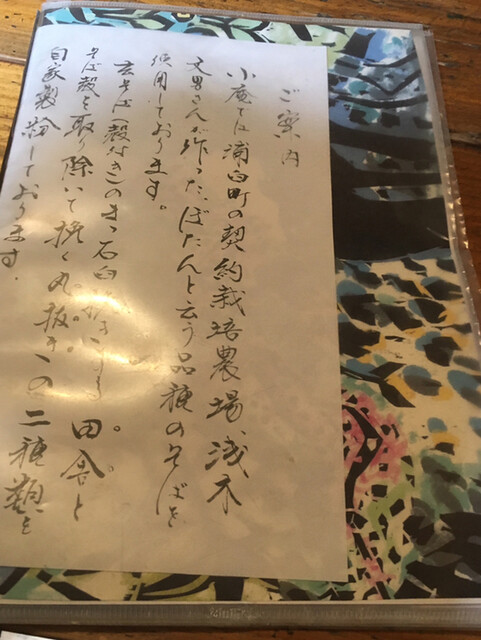 ご案内
小庵では浦臼町の契約栽培農場、浅木
文男さんが作った、ぼたんと云う品種のそばを
使用しております。
玄そば(殻付き)のまゝ石臼挽きする田舎と
そば殻を取り除いて挽く丸抜きの二種類を
自家製粉しております.